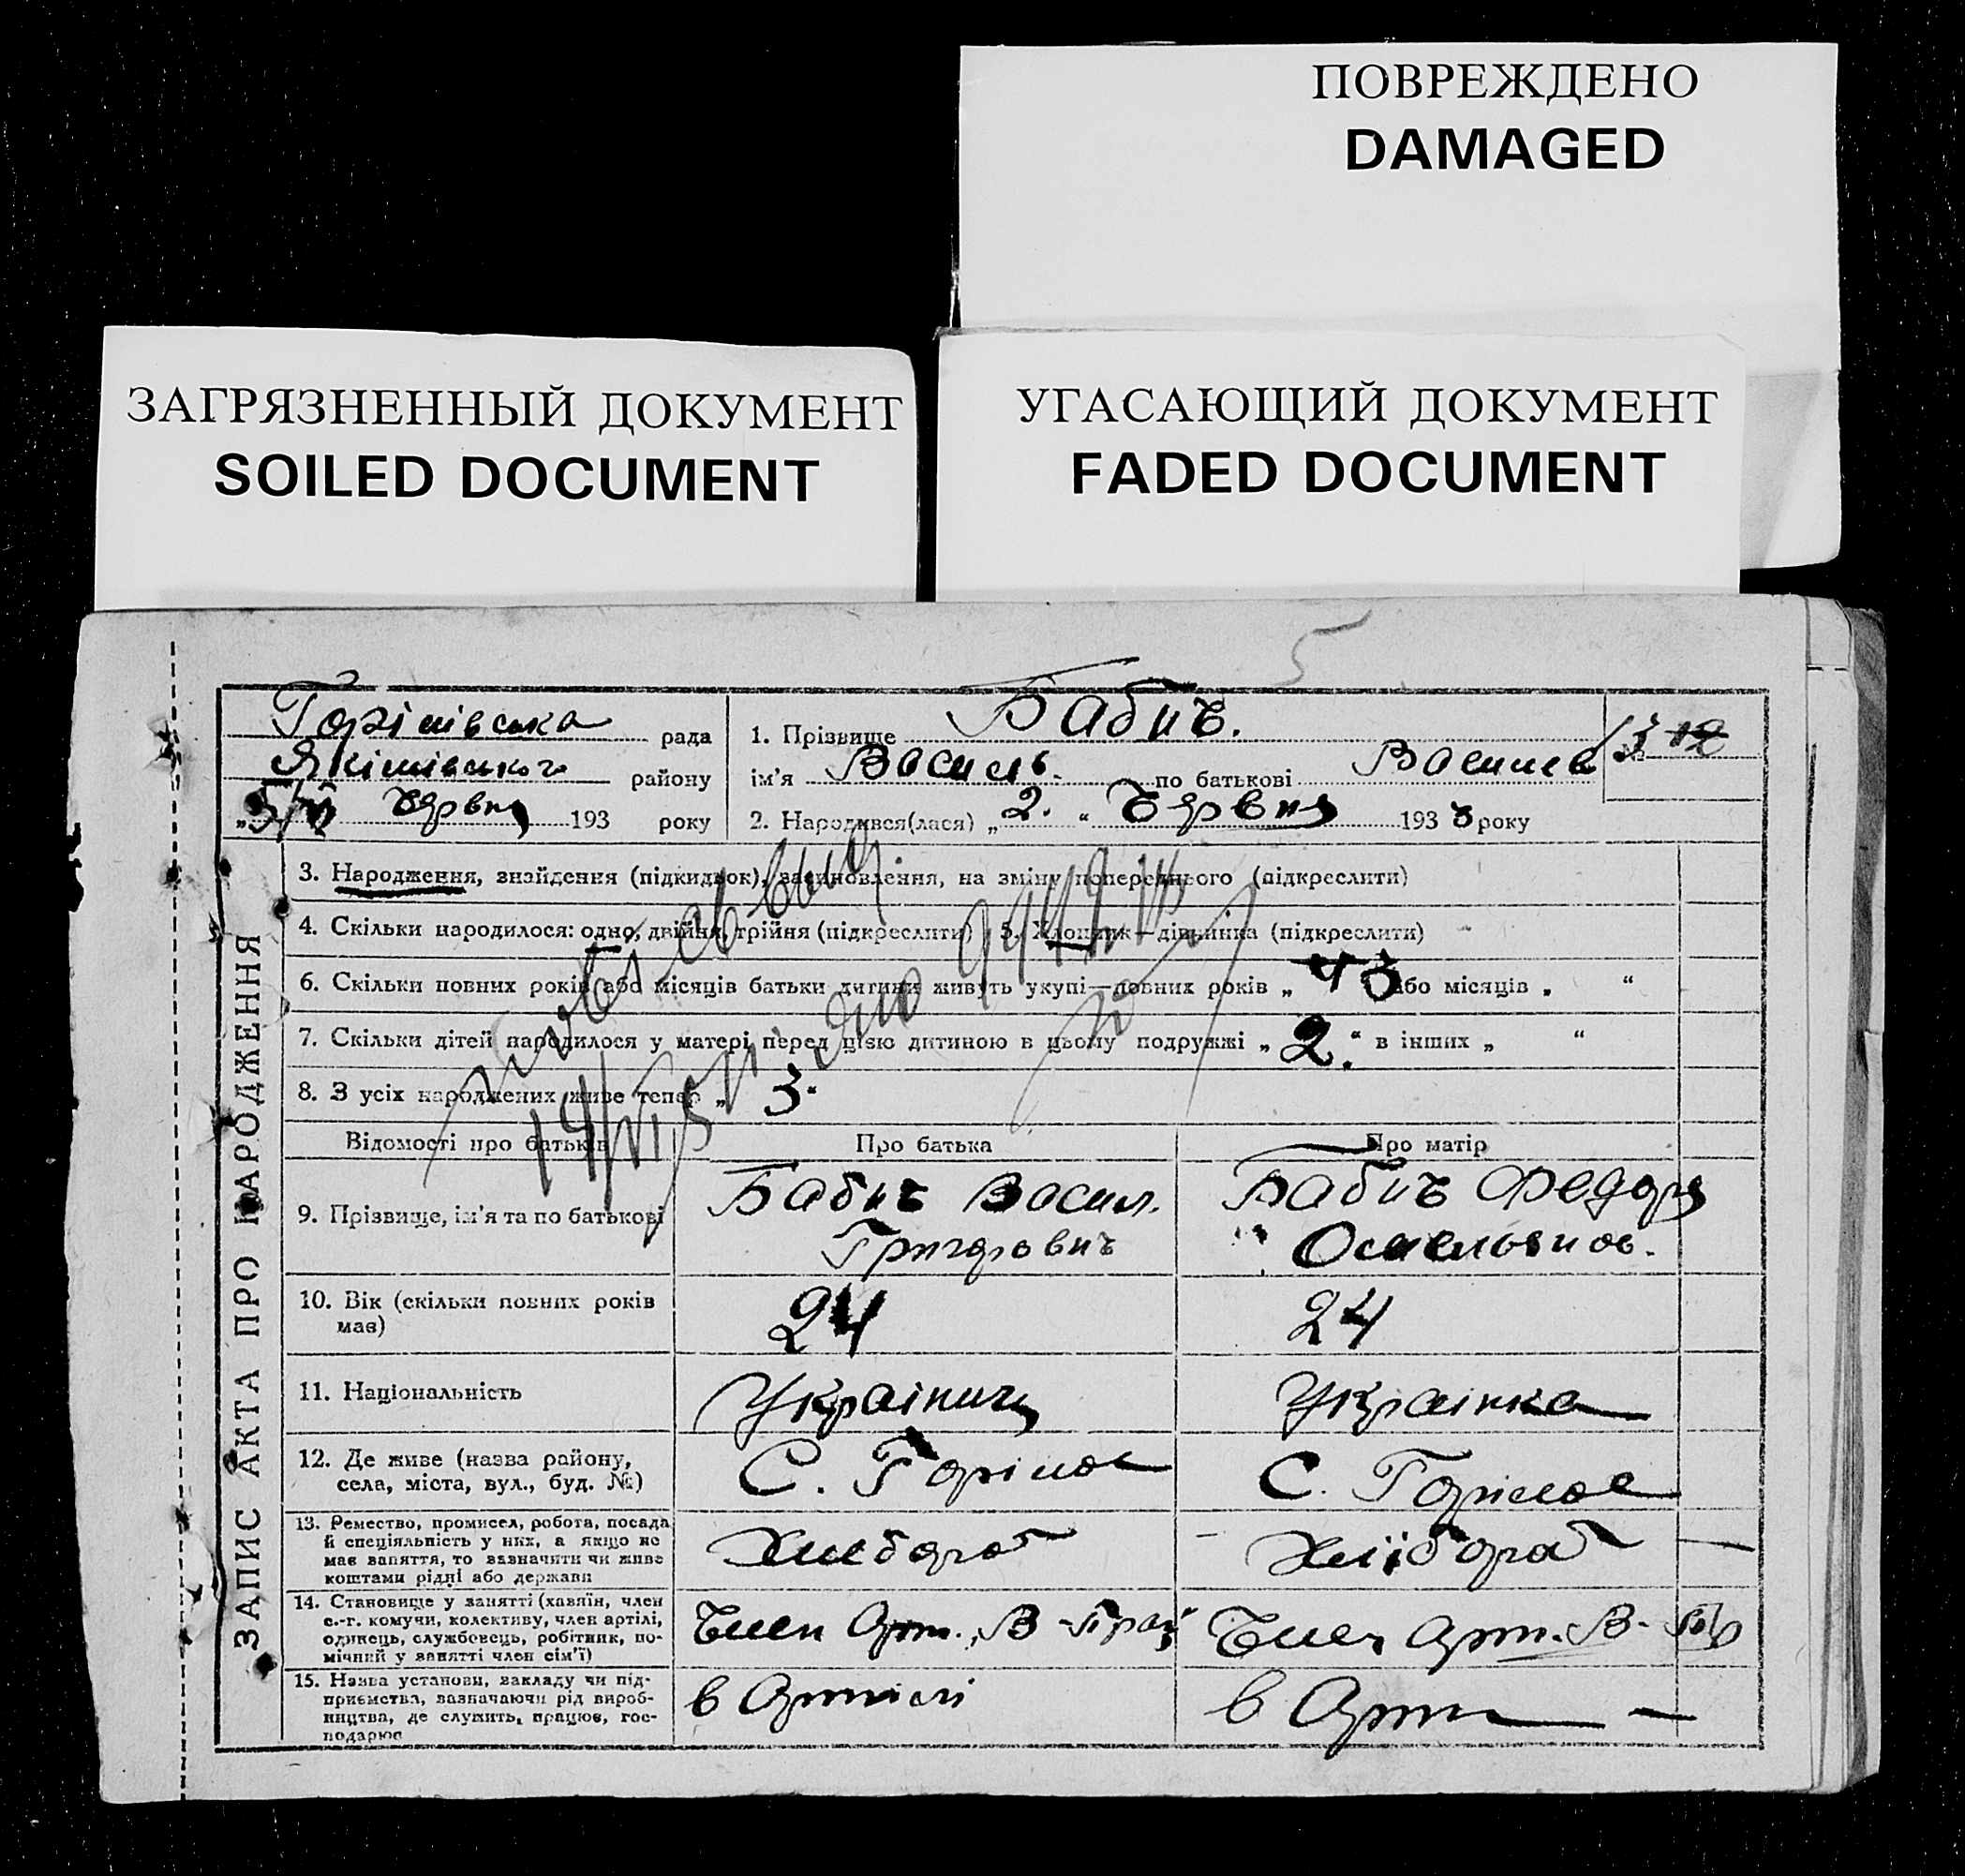 ПОВРЕЖДЕНО
DAMAGED
ЗАГРЯЗНЕННЫЙ ДОКУМЕНТ
SOILED DOCUMENT
УГАСАЮЩИЙ ДОКУМЕНТ
FADED DOCUMENT
5
ЗАПИС АКТА ПРО НАРОДЖЕННЯ
рада
району
193 року
1. Прізвище Бабич.
ім'я Василь. по батькові
2. Народився(лася) „2.“ Червня 1933 року
3. Народження, знайдення (підкидьок), засиновлення, на зміну попереднього (підкреслити)
4. Скільки народилося: одно, двійня, трійня (підкреслити) 5. Хлопчик—дівчинка (підкреслити)
6. Скільки повних років або місяців батьки дитини живуть укупі—повних років „ або місяців „ “
7. Скільки дітей народилося у матері перед цією дитиною в цьому подружжі „2.“ в інших „ “
8. З усіх народжених живе тепер „3.“
Відомості про батьків
Про батька
Про матір
9. Прізвище, ім'я та по батькові
Бабич Васил.
Григорович
Бабич Федора
10. Вік (скільки повних років
має)
24
24
11. Національність
Українець
Українка
12. Де живе (назва району,
села, міста, вул., буд. №)
С.
С.
13. Ремество, промисел, робота, посада
й спеціяльність у них, а якщо не
має заняття, то зазначити чи живе
коштами рідні або держави
Хлебороб
Хліїбороб
14. Становище у занятті (хазяїн, член
с.-г. комуни, колективу, член артілі,
одинець, службовець, робітник, по-
мічний у занятті член сім'ї)
Член Арт.
Член Арт.
15. Назва установи, закладу чи під-
приємства, зазначаючи рід вироб-
ництва, де служить, працює, гос-
подарює
в Артілі
в Арт